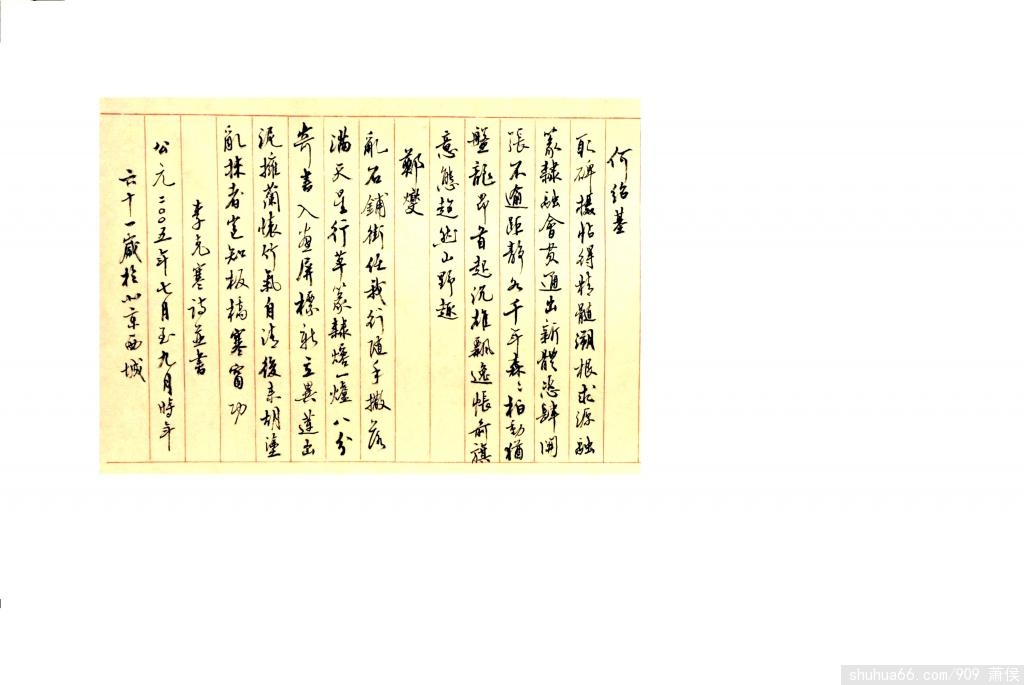 何绍基
取碑攘帖得精髓溯根求源融
篆隸融會贯通出新體恣肆開
張不逾距静如千年森々柏動猶
盤龍昂首起沉雄飄逸帳前旗
意態超然山野趣
鄭燮
亂石鋪街任我行随手撒落
满天星行草篆隸熔一爐八分
奇書入画屏標新立異蓮出
泥擁蘭懷竹氣自清後来胡塗
亂抹者岂知板橋寒窗功
李克寒詩並書
公元二〇〇五年七月至九月時年
六十一歲於北京西城
shuhua66.com/909 萧侯